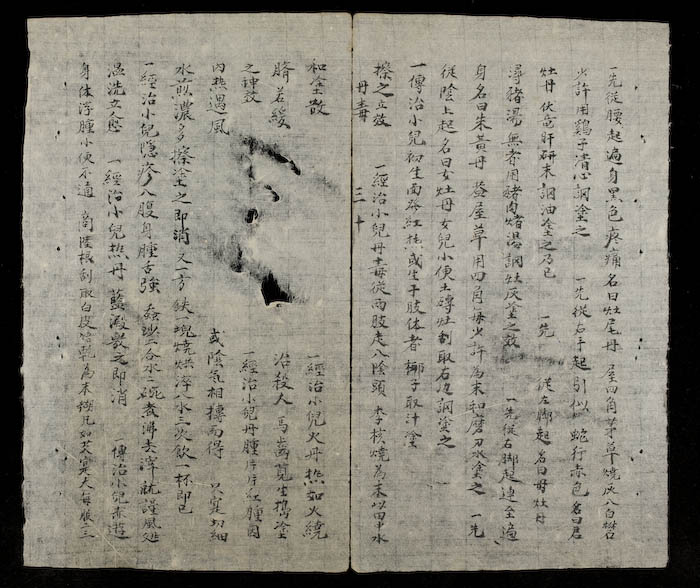 一先從腰起遍身黑色疼痛名曰灶尾丹 屋四角茅草燒灰入白礬
少許用鷄子清心調塗之 一先從右手起引似蛇行赤色名曰
灶丹 伏竜肝研末調油塗之乃已 一先 從左脚起名曰母灶丹
潯豬湯無者用豬肉煮湯調灶灰塗之效 一先從右脚起連至遍
身名曰朱黃丹 蓋屋草用四角採少許為末和磨刀水塗之 一先
從陰上起名曰女灶丹 女兒小便土磚灶刮取右边調塗之
一傳治小兒初生面發紅热或生于肢体者 椰子取汁塗
搽之立效 一經治小兒丹毒從両肢走入陰頭 李核燒為末以田中水
丹毒 三十
和塗散 一經治小兒火丹热如火繞
臍若綬 治殺人 馬齒莧生搗塗
之神效 一經治小兒丹腫片片紅腫因
内热遇風 或陰気相摶而得 只寔切細
水煎濃多搽塗之即消 又一方 鉄一塊燒烘淬入水三次飲一杯即已
一經治小兒隐疹入腹身腫舌強 蚕砂二合水二碗煮沸去滓就謹風処
温洗立愈 一經治小兒热丹 藍澱敷之即消 一傳治小兒赤遊
身体浮腫小便不通 商陸根刮取白皮焙乾為末糊凡如芡寔大每服三